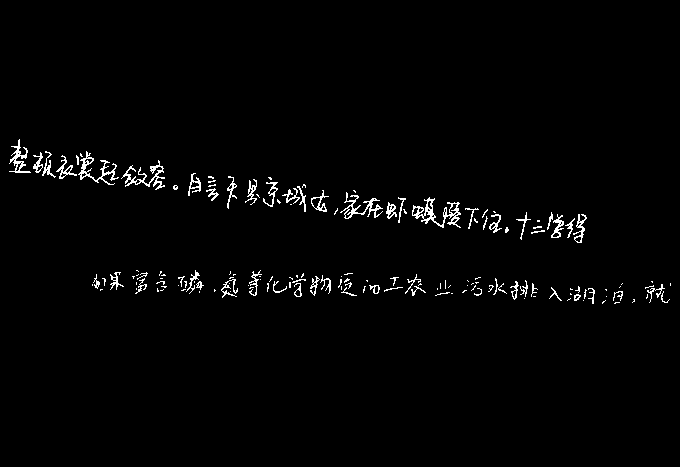 整顿衣裳起敛容。自言本是京城女,家在虾蟆陵下住。十三学得
如果富含磷、氮等化学物质的工农业污水排入湖泊,就